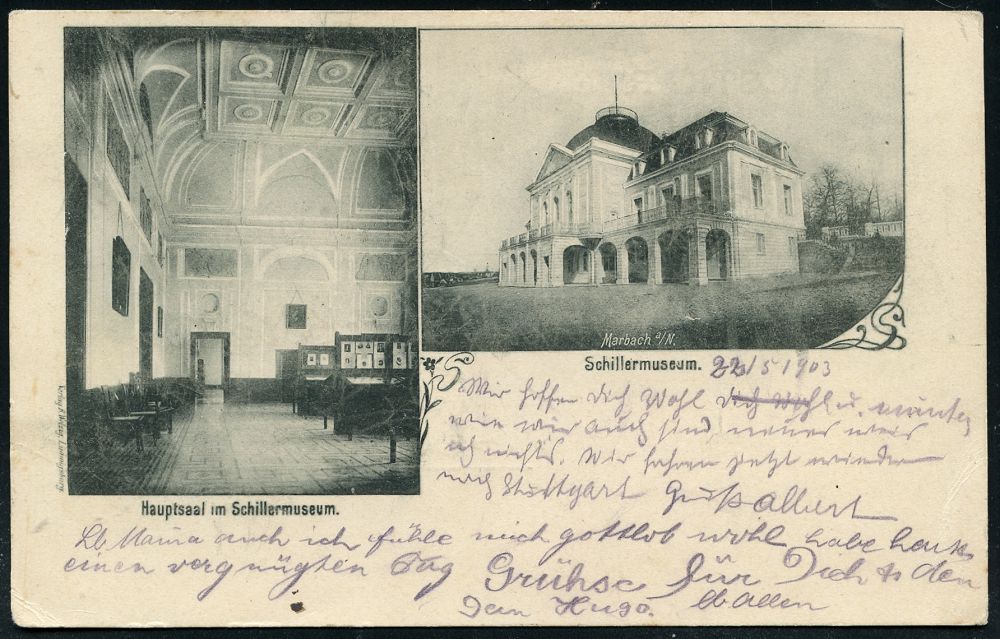 Marbach a/N.
Schillermuseum. 22/5 1903
Hauptsaal im Schillermuseum.
Wir hoffen Dich Wohl u. munter
wie wir auch sind neues weis
ich nichts. Wir fahren jetzt wieder
nach Stuttgart Gruß Albert
Lb Mama auch ich fühle mich gottlob wohl habe heute
einen vergnügten Tag Grühse für Dich & den
lb allen
Dein Hugo.